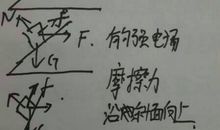 N f
F. 有的强电场
G 摩擦力
f 沿斜面向上